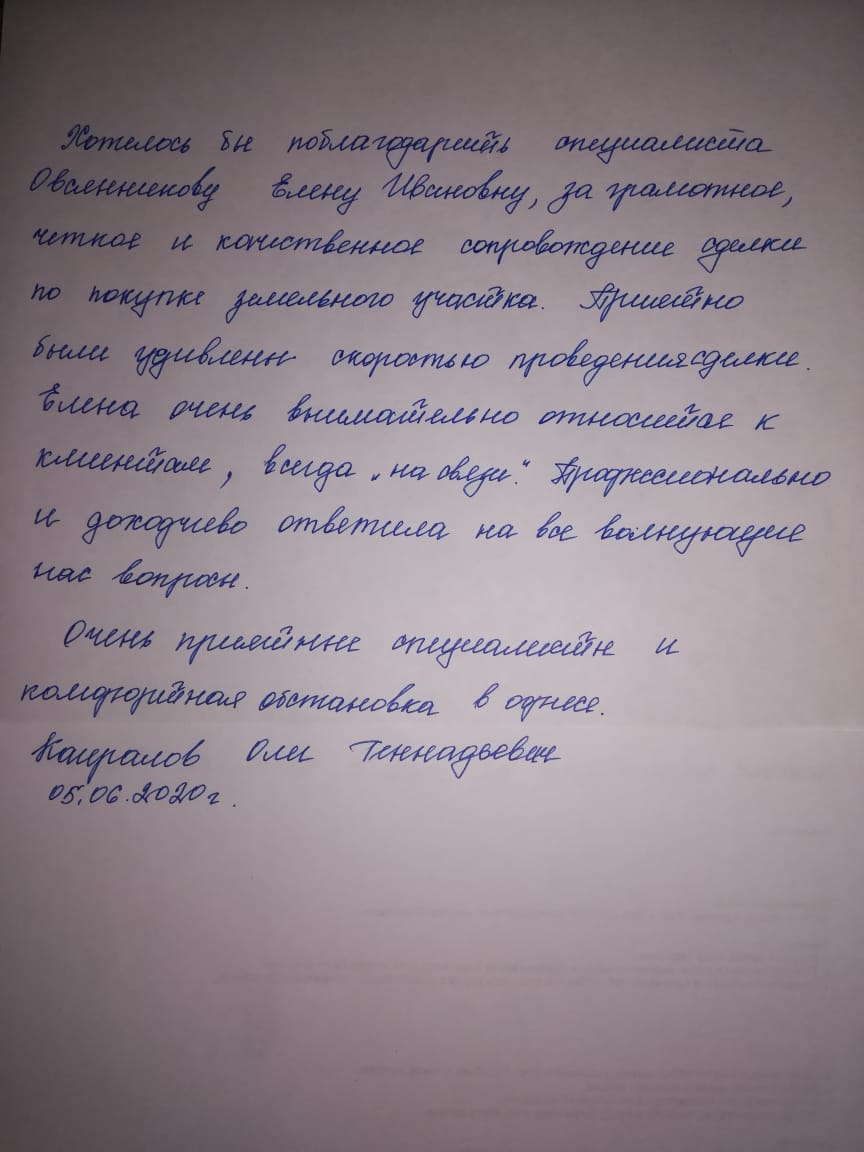 Хотелось бы поблагодарить специалиста
Овсянникову Елену Ивановну, за грамотное,
четкое и качественное сопровождение сделки
по покупке земельного участка. Приятно
были удивлены скоростью проведения сделки.
Елена очень внимательно относится к
клиентам, всегда "на связи". Профессионально
и доходчиво ответила на все волнующие
нас вопросы.
Очень приятные специалисты и
комфортная обстановка в офисе.
Геннадьевич
05.06.2020г.